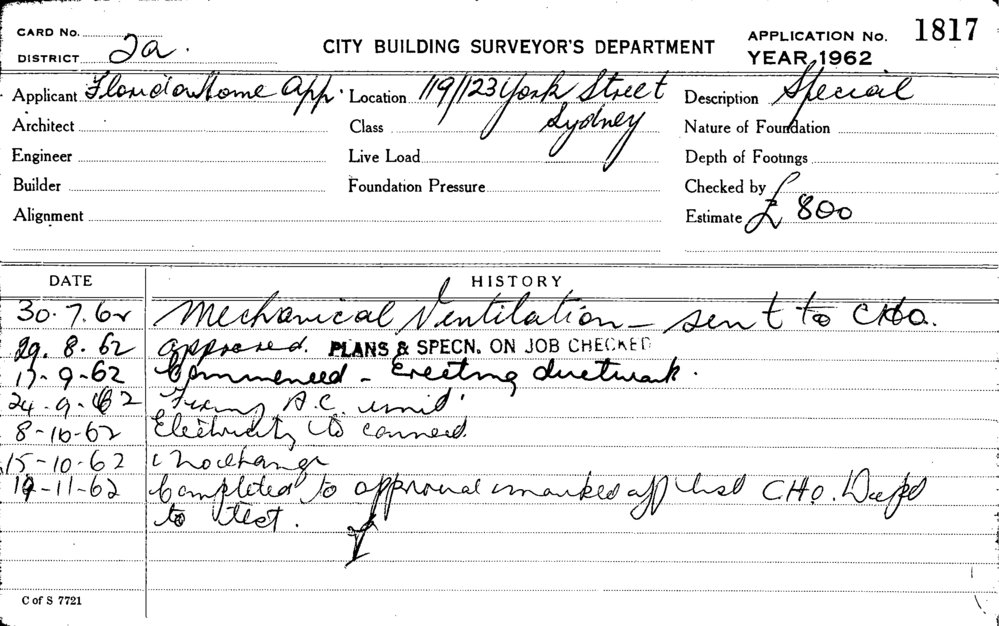 CARD No. CITY BUILDING SURVEYOR'S DEPARTMENT APPLICATION No. 1817
DISTRICT 2a. YEAR 1962
Applicant Home App. Location 119/123 York Street Description Special
Architect Class Sydney Nature of Foundation
Engineer Live Load Depth of Footings
Builder Foundation Pressure Checked by
Alignment Estimate £ 800
DATE HISTORY
30.7.62 Mechanical Ventilation - sent to CHO.
29.8.62 approved. PLANS & SPECN. ON JOB CHECKED
17-9-62 Commenced - Erecting ductwork.
24-9-62 Fixing A.C. unit.
8-10-62 Electricity to connect.
15-10-62 No change
19-11-62 Completed to approval marked off list CHO. Dept
to test.
C of S 7721